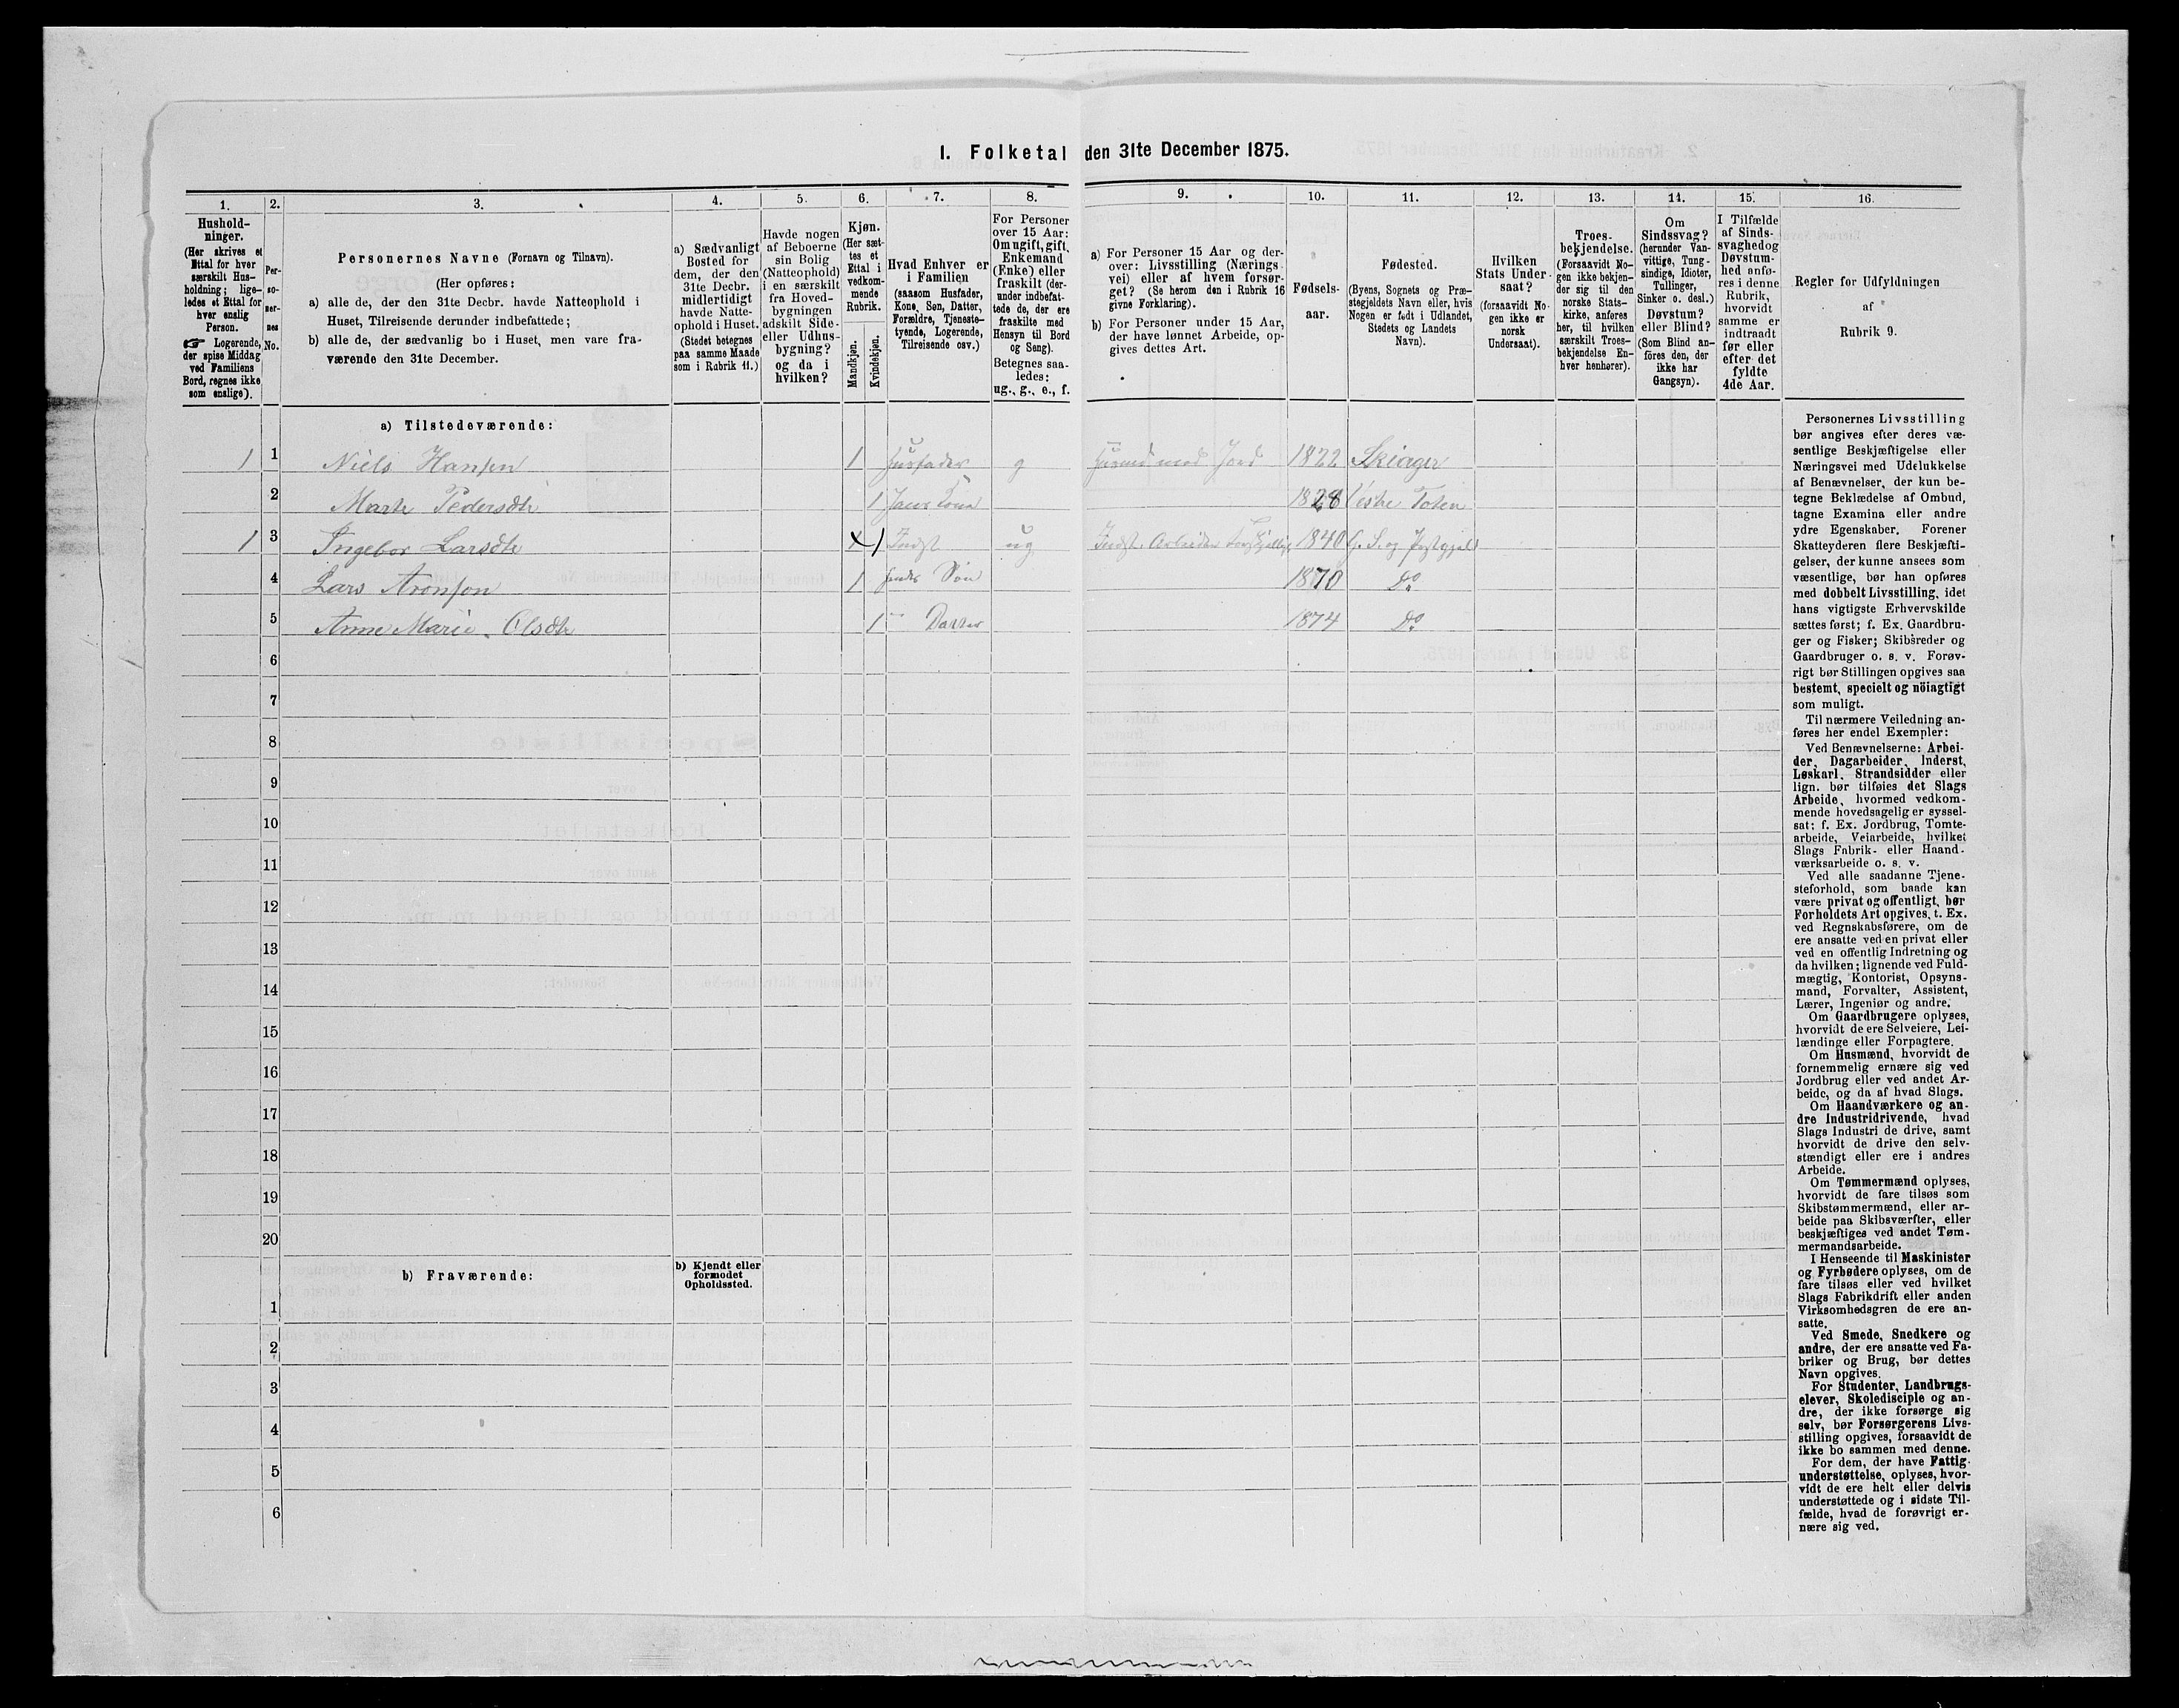 I. Folketal den 31te December 1875.
1.
Hushold-
ninger.
(Her skrives et
Ettal for hver
særskilt Hus-
holdning; lige-
ledes et Ettal for
hver enslig
Person.
☞ Logerende,
der spise Middag
ved Familiens
Bord, regnes ikke
som enslige).
2.
Per-
so-
ner-
nes
No.
3.
Personernes Navne (Fornavn og Tilnavn).
(Her opføres:
a) alle de, der den 31te Decbr. havde Natteophold i
Huset, Tilreisende derunder indbefattede;
b) alle de, der sædvanlig bo i Huset, men vare fra-
værende den 31te December.
4.
a) Sædvanligt
Bosted for
dem, der den
31te Decbr.
midlertidigt
havde Natte-
ophold i Huset.
(Stedet betegnes
paa samme Maade
som i Rubrik 11.)
5.
Havde nogen
af Beboerne
sin Bolig
(Natteophold)
i en særskilt
fra Hoved-
bygningen
adskilt Side-
eller Udhus-
bygning?
og da i
hvilken?
6.
Kjøn.
(Her sæt-
tes et
Ettal i
vedkom-
mende
Rubrik.
Mandkjøn.
Kvindekjøn.
7.
Hvad Enhver er
i Familien
(saasom Husfader,
Kone, Søn, Datter,
Forældre, Tjeneste-
tyende, Logerende,
Tilreisende osv.)
8.
For Personer
over 15 Aar:
Om ugift, gift,
Enkemand
(Enke) eller
fraskilt (der-
under indbefat-
tede de, der ere
fraskilte med
Hensyn til Bord
og Seng).
Betegnes saa-
ledes:
ug., g., e., f.
9.
a) For Personer 15 Aar og der-
over: Livsstilling (Nærings-
vei) eller af hvem forsør-
get? (Se herom den i Rubrik 16
givne Forklaring).
b) For Personer under 15 Aar,
der have lønnet Arbeide, op-
gives dettes Art.
10.
Fødsels-
aar.
11.
Fødested.
(Byens, Sognets og Præ-
stegjeldets Navn eller, hvis
Nogen er født i Udlandet,
Stedets og Landets
Navn).
12.
Hvilken
Stats Under-
saat?
(forsaavidt No-
gen ikke er
norsk
Undersaat).
13.
Troes-
bekjendelse.
(Forsaavidt No-
gen ikke bekjen-
der sig til den
norske Stats-
kirke, anføres
her, til hvilken
særskilt Troes-
bekjendelse En-
hver henhører).
14.
Om
Sindssvag?
(herunder Van-
vittige, Tung-
sindige, Idioter,
Tullinger,
Sinker o. desl.)
Døvstum?
eller Blind?
(Som Blind an-
føres den, der
ikke har
Gangsyn).
15.
I Tilfælde
af Sinds-
svaghed og
Døvstum-
hed anfø-
res i denne
Rubrik,
hvorvidt
samme er
indtraadt
før eller
efter det
fyldte
4de Aar.
16.
Regler for Udfyldningen
af
Rubrik 9.
a) Tilstedeværende:
1 1 Niels Hansen 1 Husfader g Husmd med Jord 1822 Skiager
2 Marte Pedersdtr 1 Hans Kone 1828 Vestre Toten
1 3 Ingebor Larsdtr 1 Indst ug Indst. Arbeider 1840 G. S. og Prstgjæld
4 Lars Aronsen 1 hendes Søn 1870 Do
5 Anne Marie Olsdtr 1 " Datter 1874 Do
6
7
8
9
10
11
12
13
14
15
16
17
18
19
20
b) Fraværende:
b) Kjendt eller
formodet
Opholdssted.
1
2
3
4
5
6
Personernes Livsstilling
bør angives efter deres væ-
sentlige Beskjæftigelse eller
Næringsvei med Udelukkelse
af Benævnelser, der kun be-
tegne Beklædelse af Ombud,
tagne Examina eller andre
ydre Egenskaber. Forener
Skatteyderen flere Beskjæfti-
gelser, der kunne ansees som
væsentlige, bør han opføres
med dobbelt Livsstilling, idet
hans vigtigste Erhvervskilde
sættes først; f. Ex. Gaardbru-
ger og Fisker; Skibsreder og
Gaardbruger o. s. v. Forøv-
rigt bør Stillingen opgives saa
bestemt, specielt og nöiagtigt
som muligt.
Til nærmere Veiledning an-
føres her endel Exempler:
Ved Benævnelserne: Arbei-
der, Dagarbeider, Inderst,
Løskarl, Strandsidder eller
lign. bør tilføies det Slags
Arbeide, hvormed vedkom-
mende hovedsagelig er syssel-
sat; f. Ex. Jordbrug, Tomte-
arbeide, Veiarbeide, hvilket
Slags Fabrik- eller Haand-
værksarbeide o. s. v.
Ved alle saadanne Tjene-
steforhold, som baade kan
være privat og offentligt, bør
Forholdets Art opgives, t. Ex.
ved Regnskabsførere, om de
ere ansatte ved en privat eller
ved en offentlig Indretning og
da hvilken; lignende ved Fuld-
mægtig, Kontorist, Opsyns-
mand, Forvalter, Assistent,
Lærer, Ingeniør og andre.
Om Gaardbrugere oplyses,
hvorvidt de ere Selveiere, Lei-
lændinge eller Forpagtere.
Om Husmænd, hvorvidt de
fornemmelig ernære sig ved
Jordbrug eller ved andet Ar-
beide, og da af hvad Slags.
Om Haandværkere og an-
dre Industridrivende, hvad
Slags Industri de drive, samt
hvorvidt de drive den selv-
stændigt eller ere i andres
Arbeide.
Om Tømmermænd oplyses,
hvorvidt de fare tilsøs som
Skibstømmermænd, eller ar-
beide paa Skibsværfter, eller
beskjæftiges ved andet Tøm-
mermandsarbeide.
I Henseende til Maskinister
og Fyrbødere oplyses, om de
fare tilsøs eller ved hvilket
Slags Fabrikdrift eller anden
Virksomhedsgren de ere an-
satte.
Ved Smede, Snedkere og
andre, der ere ansatte ved Fa-
briker og Brug, bør dettes
Navn opgives.
For Studenter, Landbrugs-
elever, Skoledisciple og an-
dre, der ikke forsørge sig
selv, bør Forsørgerens Livs-
stilling opgives, forsaavidt de
ikke bo sammen med denne.
For dem, der have Fattig-
understøttelse, oplyses, hvor-
vidt de ere helt eller delvis
understøttede og i sidste Til-
fælde, hvad de forøvrigt er-
nære sig ved.